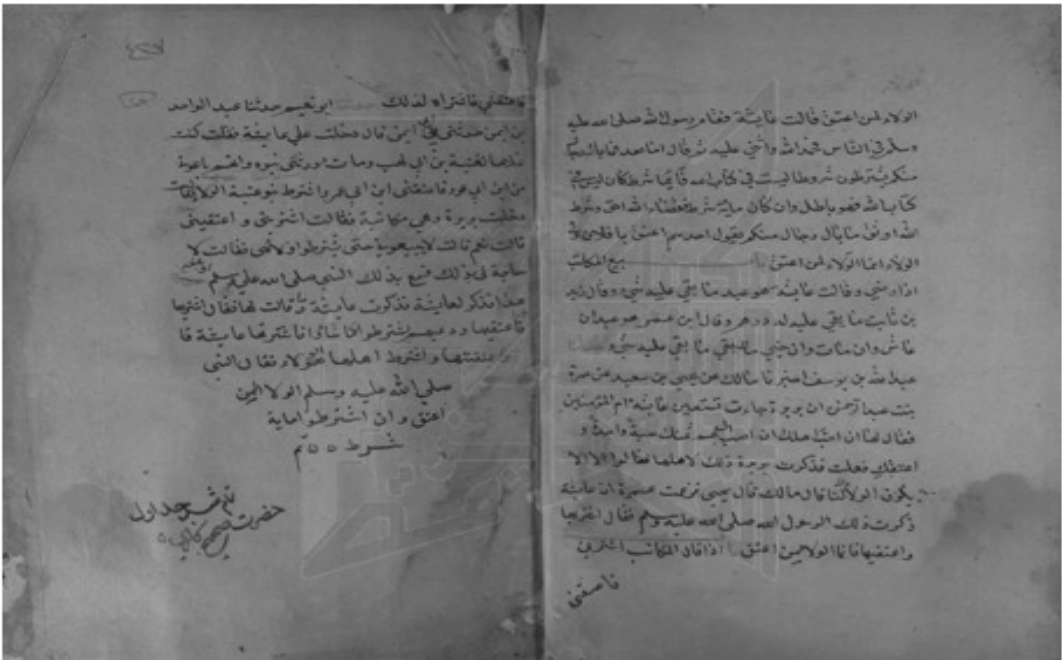 الولاء لمن اعتق قالت عايشة فقام رسول الله صلى الله عليه
وسلم في الناس فحمد الله واثنى عليه ثم قال اما بعد فما بال رجال
منكم يشترطون شروطا ليست في كتاب الله فايما شرط كان ليس في
كتاب الله فهو باطل وان كان ماية شرط فقضاء الله احق وشرط
الله اوثق ما بال رجال منكم يقول احدهم اعتق يا فلان ولي
الولاء انما الولاء لمن اعتق باب بيع المكاتب
اذا رضي وقالت عايشة هو عبد ما بقي عليه شيء وقال زيد
بن ثابت ما بقي عليه درهم وقال ابن عمر هو عبد ان
عاش وان مات وان جنى ما بقي عليه شيء
عبد الله بن يوسف اخبرنا مالك عن يحيى بن سعيد عن عمرة
بنت عبد الرحمن ان بريرة جاءت تستعين عايشة ام المؤمنين
فقال لها ان احب اهلك ان اصب لهم ثمنك صبة واحدة و
اعتقك فعلت فذكرت بريرة ذلك لاهلها فقالوا لا الا
يكون الولاء لنا قال مالك قال يحيى فزعمت عمرة ان عايشة
ذكرت ذلك لرسول الله صلى الله عليه وسلم فقال اشتريها
واعتقيها فانما الولاء لمن اعتق اذا قال المكاتب اشترني
فاعتقني
فاعتقني فاشتراه لذلك ابو نعيم حدثنا عبد الواحد
بن ايمن حدثني ابي ايمن قال دخلت على عايشة فقلت كنت
لعتبة بن ابي لهب ومات وورثني بنوه وانهم باعوني
من ابن ابي عمرو فاعتقني ابن ابي عمرو واشترط بنو عتبة الولاء فقالت
دخلت بريرة وهي مكاتبة فقالت اشتريني واعتقيني
قالت نعم قالت لا يبيعوني حتى يشترطوا ولائي فقالت لا
حاجة لي بذلك فسمع بذلك النبي صلى الله عليه وسلم
فذكر لعايشة فذكرت عايشة ما قالت لها فقال اشتريها
فاعتقيها ودعيهم يشترطوا ما شاؤا فاشترتها عايشة فا
واعتقتها واشترط اهلها الولاء فقال النبي
صلى الله عليه وسلم الولاء لمن
اعتق وان اشترطوا ماية
شرط تم
تم جلد اول
حضرت صحيح